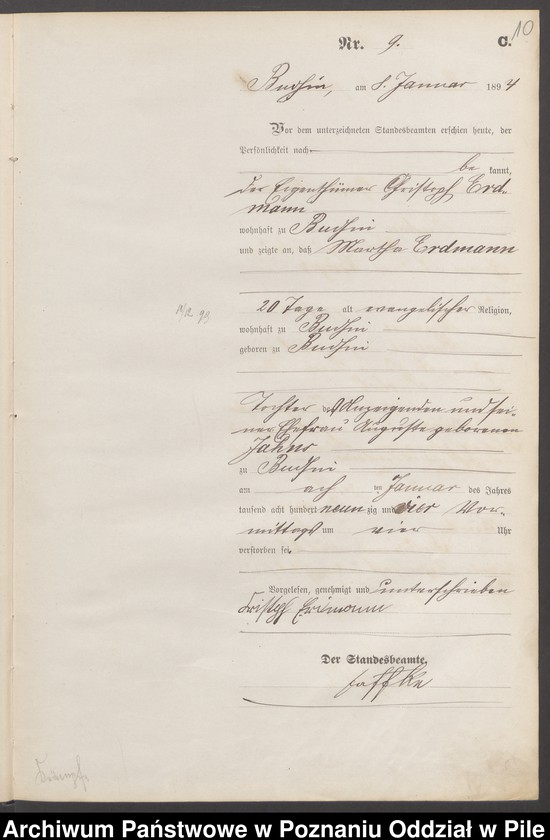 10
Nr. 9. C.
Budsin, am 8. Januar 1894
Vor dem unterzeichneten Standesbeamten erschien heute, der
Persönlichkeit nach
be kannt,
der Eigenthümer Christoph Erd-
mann
wohnhaft zu Budsin
und zeigte an, daß Martha Erdmann
20 Tage alt evangelischer Religion,
wohnhaft zu Budsin
geboren zu Budsin
Tochter des Anzeigenden und sei-
ner Ehefrau Auguste geborenen
Jahns
zu Budsin
am ach ten Januar des Jahres
tausend acht hundert neun zig und vier Vor-
mittags um vier Uhr
verstorben sei.
Vorgelesen, genehmigt und unterschrieben
Christoph Erdmann
Der Standesbeamte.
Archiwum Państwowe w Poznaniu Oddział w Pile